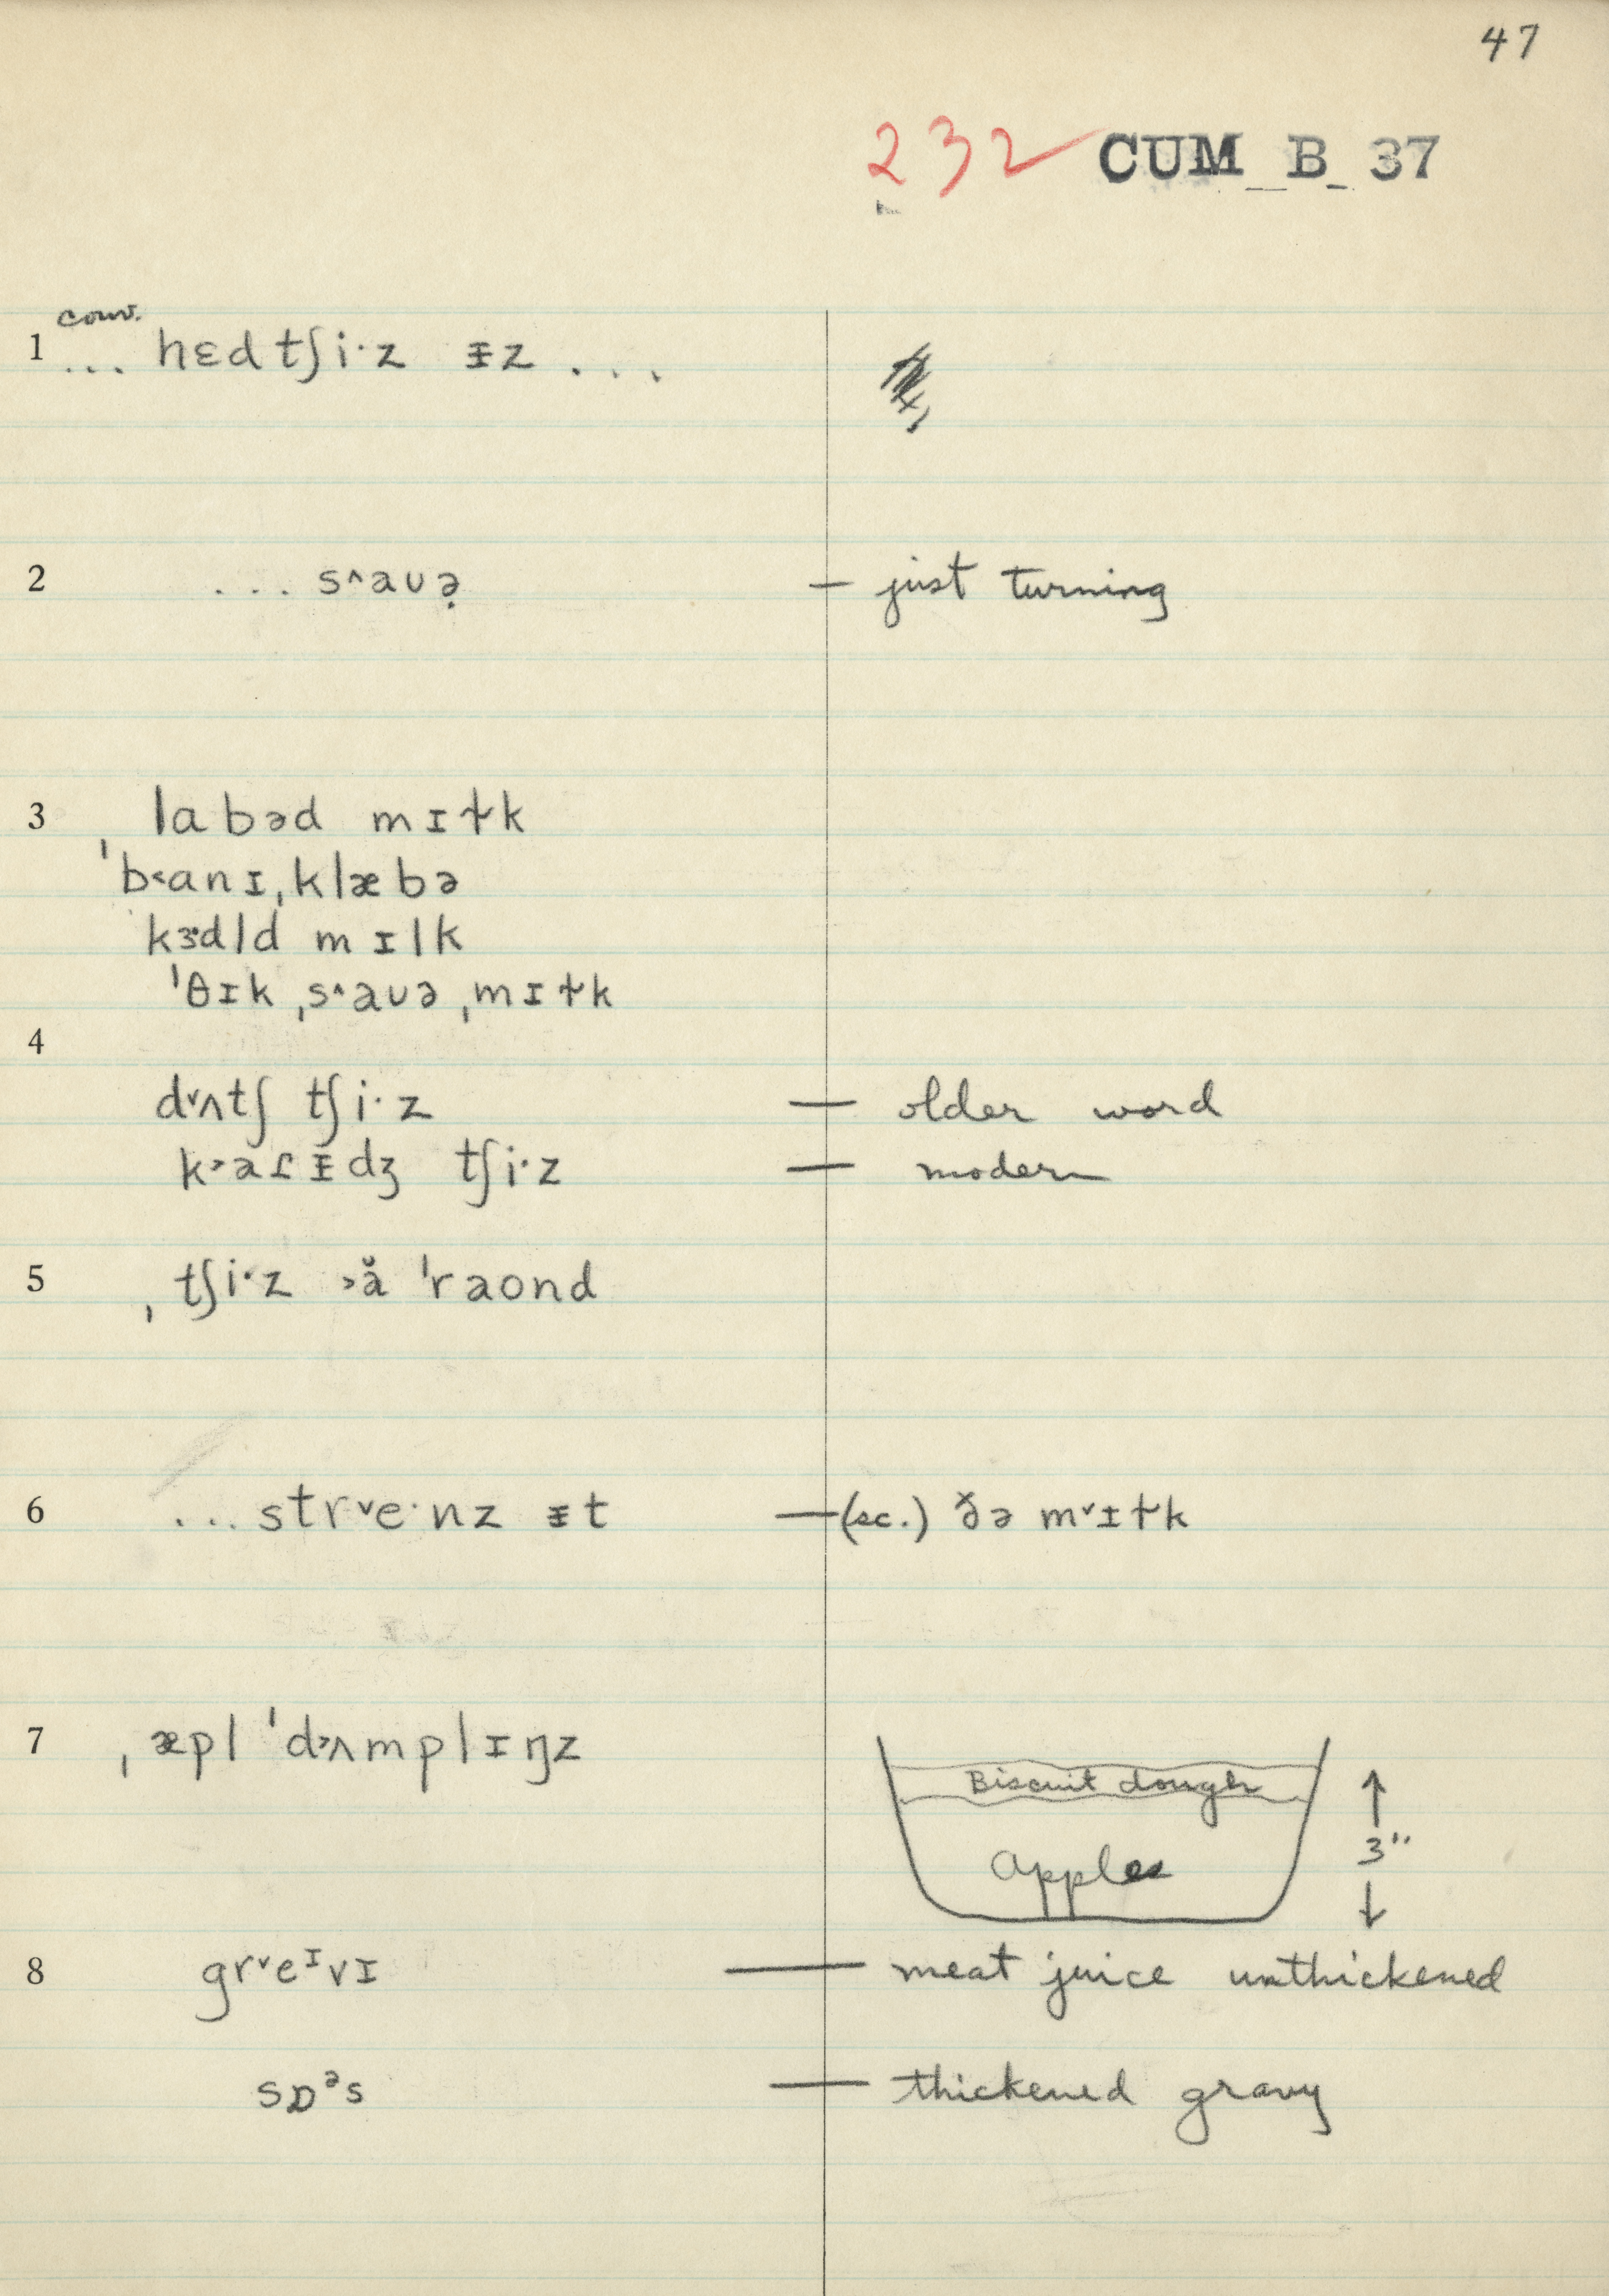 47
232 CUM B 37
conv.
1 ... hɛdtʃi·z ᵻz ...
2 ... s^aʊə̣ — just turning
3 ˌlabəd mɪɫk
ˈb<anɪˌklæbə
kɝdld mɪlk
ˈθɪk ˌs^aʊə ˌmɪɫk
4
dˇʌtʃ tʃi·z — older word
k>aɾᵻdʒ tʃi·z — modern
5 ˌtʃi·z >ă ˈraond
6 ... strˇe·nz ᵻt — (sc.) ðə mˇɪɫk
7 ˌæpl ˈd>ʌmplɪŋz
Biscuit dough
Apples
3"
8 grˇeᶦvɪ — meat juice unthickened
sɒᵊs — thickened gravy